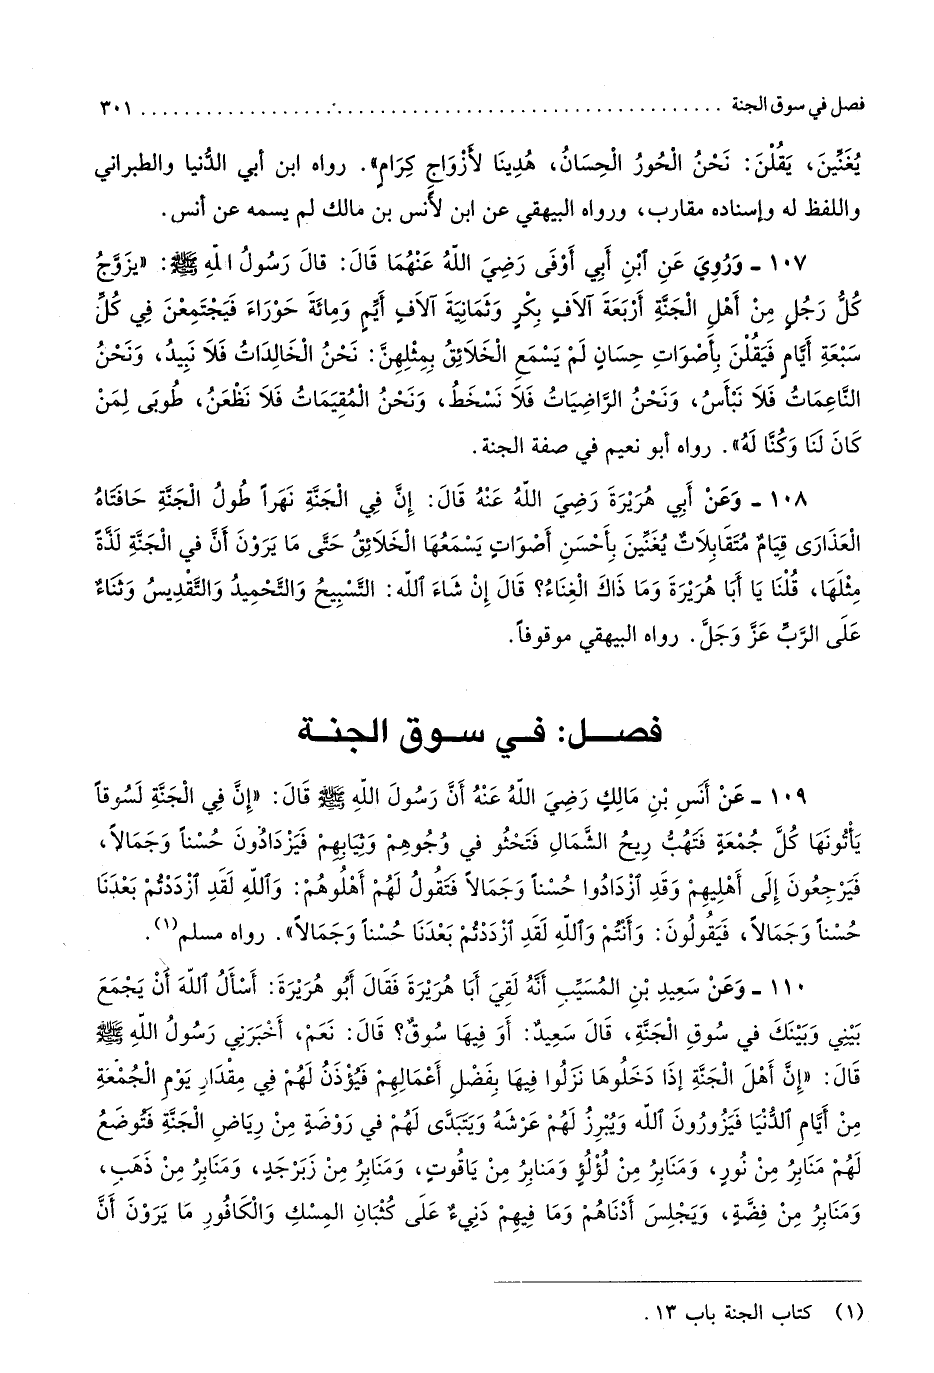 فصل في سوق الجنة ........................................................ ٣٠١
يُغَنِّينَ، يَقُلْنَ: نَحْنُ الْحُورُ الْحِسَانُ، هُدِينَا لأَزْوَاجٍ كِرَامٍ». رواه ابن أبي الدُّنيا والطبراني
واللفظ له وإسناده مقارب، ورواه البيهقي عن ابن لأنس بن مالك لم يسمه عن أنس.
١٠٧ ـ وَرُوِيَ عَنِ ٱبْنِ أَبِي أَوْفَى رَضِيَ اللّهُ عَنْهُمَا قَالَ: قالَ رَسُولُ المهِ ﷺ: «يزَوَّجُ
كُلُّ رَجُلٍ مِنْ أَهْلِ الجَنَّةِ أَرْبَعَةَ آلاَفِ بِكْرٍ وَثَمَانِيَةَ آلاَفِ أَيِّمٍ وَمِائَةَ حَوْرَاءَ فَيَجْتَمِعْنَ فِي كُلِّ
سَبْعَةِ أَيَّامٍ فَيَقُلْنَ بِأَصْوَاتٍ حِسَانٍ لَمْ يَسْمَعِ الْخَلاَئِقُ بِمِثْلِهِنَّ: نَحْنُ الْخَالِدَاتُ فَلاَ نَبِيدُ، وَنَحْنُ
النَّاعِمَاتُ فَلاَ نَبْأَسُ، وَنَحْنُ الرَّاضِيَاتُ فَلاَ نَسْخَطُ، وَنَحْنُ الْمُقِيمَاتُ فَلاَ نَظْعَنُ، طُوبَى لِمَنْ
كَانَ لَنَا وَكُنَّا لَهُ». رواه أبو نعيم في صفة الجنة.
١٠٨ ـ وَعَنْ أَبِي هُرَيْرَةَ رَضِيَ اللّهُ عَنْهُ قَالَ: إِنَّ فِي الْجَنَّةِ نَهَراً طُولُ الْجَنَّةِ حَافَتَاهُ
الْعَذَارَى قِيَامٌ مُتَقَابِلاَتٌ يُغَنِّينَ بِأَحْسَنِ أَصْوَاتٍ يَسْمَعُهَا الْخَلاَئِقُ حَتَّى مَا يَرَوْنَ أَنَّ في الْجَنَّةِ لَذَّةً
مِثْلَهَا، قُلْنَا يَا أَبَا هُرَيْرَةَ وَمَا ذَاكَ الْغِنَاءُ؟ قَالَ إِنْ شَاءَ ٱللّه: التَّسْبِيحُ وَالتَّحْمِيدُ وَالتَّقْدِيسُ وَثَنَاءٌ
عَلَى الرَّبِّ عَزَّ وَجَلَّ. رواه البيهقي موقوفاً.
فصل: في سوق الجنة
١٠٩ ـ عَنْ أَنَسِ بْنِ مَالِكٍ رَضِيَ اللّهُ عَنْهُ أَنَّ رَسُولَ اللّهِ ﷺ قَالَ: «إِنَّ فِي الْجَنَّةِ لَسُوقاً
يَأْتُونَهَا كُلَّ جُمْعَةٍ فَتَهُبُّ رِيحُ الشَّمَالِ فَتَحْثُو في وُجُوهِمْ وَثِيَابِهِمْ فَيَزْدَادُونَ حُسْناً وَجَمَالاً،
فَيَرْجِعُونَ إِلَى أَهْلِيهِمْ وَقَدِ ٱزْدَادُوا حُسْناً وَجَمَالاً فَتَقُولُ لَهُمْ أَهْلُوهُمْ: وَٱللّهِ لَقَدِ ٱزْدَدْتُمْ بَعْدَنَا
حُسْناً وَجَمَالاً، فَيَقُولُونَ: وَأَنْتُمْ وَٱللّهِ لَقَدِ ٱزْدَدْتُمْ بَعْدَنَا حُسْناً وَجَمَالاً». رواه مسلم(١).
١١٠ ـ وَعَنْ سَعِيدِ بْنِ المُسَيِّبِ أَنَّهُ لَقِيَ أَبَا هُرَيْرَةَ فَقَالَ أَبُو هُرَيْرَةَ: أَسْأَلُ ٱللّهَ أَنْ يَجْمَعَ
بَيْنِي وَبَيْنَكَ في سُوقِ الْجَنَّةِ، قَالَ سَعِيدٌ: أَوَ فِيهَا سُوقٌ؟ قَالَ: نَعَمْ، أَخْبَرَنِي رَسُولُ اللّهِ ﷺ
قَالَ: «إِنَّ أَهْلَ الْجَنَّةِ إِذَا دَخَلُوهَا نَزَلُوا فِيهَا بِفَضْلِ أَعْمَالِهِمْ فَيُؤْذَنُ لَهُمْ فِي مِقْدَارِ يَوْمِ الْجُمْعَةِ
مِنْ أَيَّامِ ٱلدُّنْيَا فَيَزُورُونَ ٱللّه وَيُبْرِزُ لَهُمْ عَرْشَهُ وَيَتَبَدَّى لَهُمْ في رَوْضَةٍ مِنْ رِيَاضِ الْجَنَّةِ فَتُوضَعُ
لَهُمْ مَنَابِرُ مِنْ نُورٍ، وَمَنَابِرُ مِنْ لُؤْلُؤٍ وَمَنابِرُ مِنْ يَاقُوتٍ، وَمَنَابِرُ مِنْ زَبَرْجَدٍ، وَمَنَابِرُ مِنْ ذَهَبٍ،
وَمَنَابِرُ مِنْ فِضَّةٍ، وَيَجْلِسَ أَدْنَاهُمْ وَمَا فِيهِمْ دَنِيءٌ عَلَى كُثْبَانِ المِسْكِ وَالْكَافُورِ مَا يَرَوْنَ أَنَّ
(١) كتاب الجنة باب ١٣.